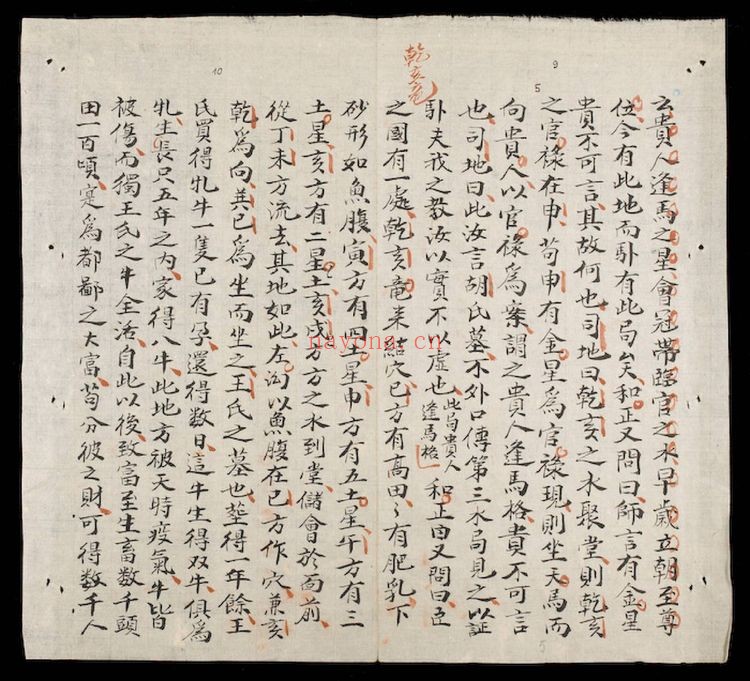 9
5
云貴人逢馬之星會冠帶臨官之水早歲立朝至尊
位今有此地而卧有此局矣和正又問曰師言有金星
貴不可言其故何也司地曰乾亥之水聚堂則乾亥
之官祿在申苟申有金星爲官祿現則坐天馬而
向貴人以官祿爲案謂之貴人逢馬格貴不可言
也司地曰此汝言胡氏墓木外口傳第三水局見之以証
乾亥竜
卧夫我之教汝以實不以虛也此局貴人逢馬格和正白又問曰臣
之國有一處乾亥竜来結穴巳方有高田〻有肥乳下
10
砂形如魚腹寅方有四土星申方有五土星午方有三
土星亥方有二星土亥戌方方之水到堂儲會於面前
從丁未方流去其地如此左沟以魚腹在巳方作穴兼亥
乾爲向巽巳爲坐而坐之王氏之墓也塟得一年餘王
氏買得牝牛一隻已有孕還得数日這牛生得双牛俱爲
牝生長只五年之内家得八牛此地方被天時疫氣牛皆
被傷而獨王氏之牛全活自此以後致富至生畜数千頭
田一百頃寔爲都鄙之大富苟分彼之財可得数千人
nayona.cn